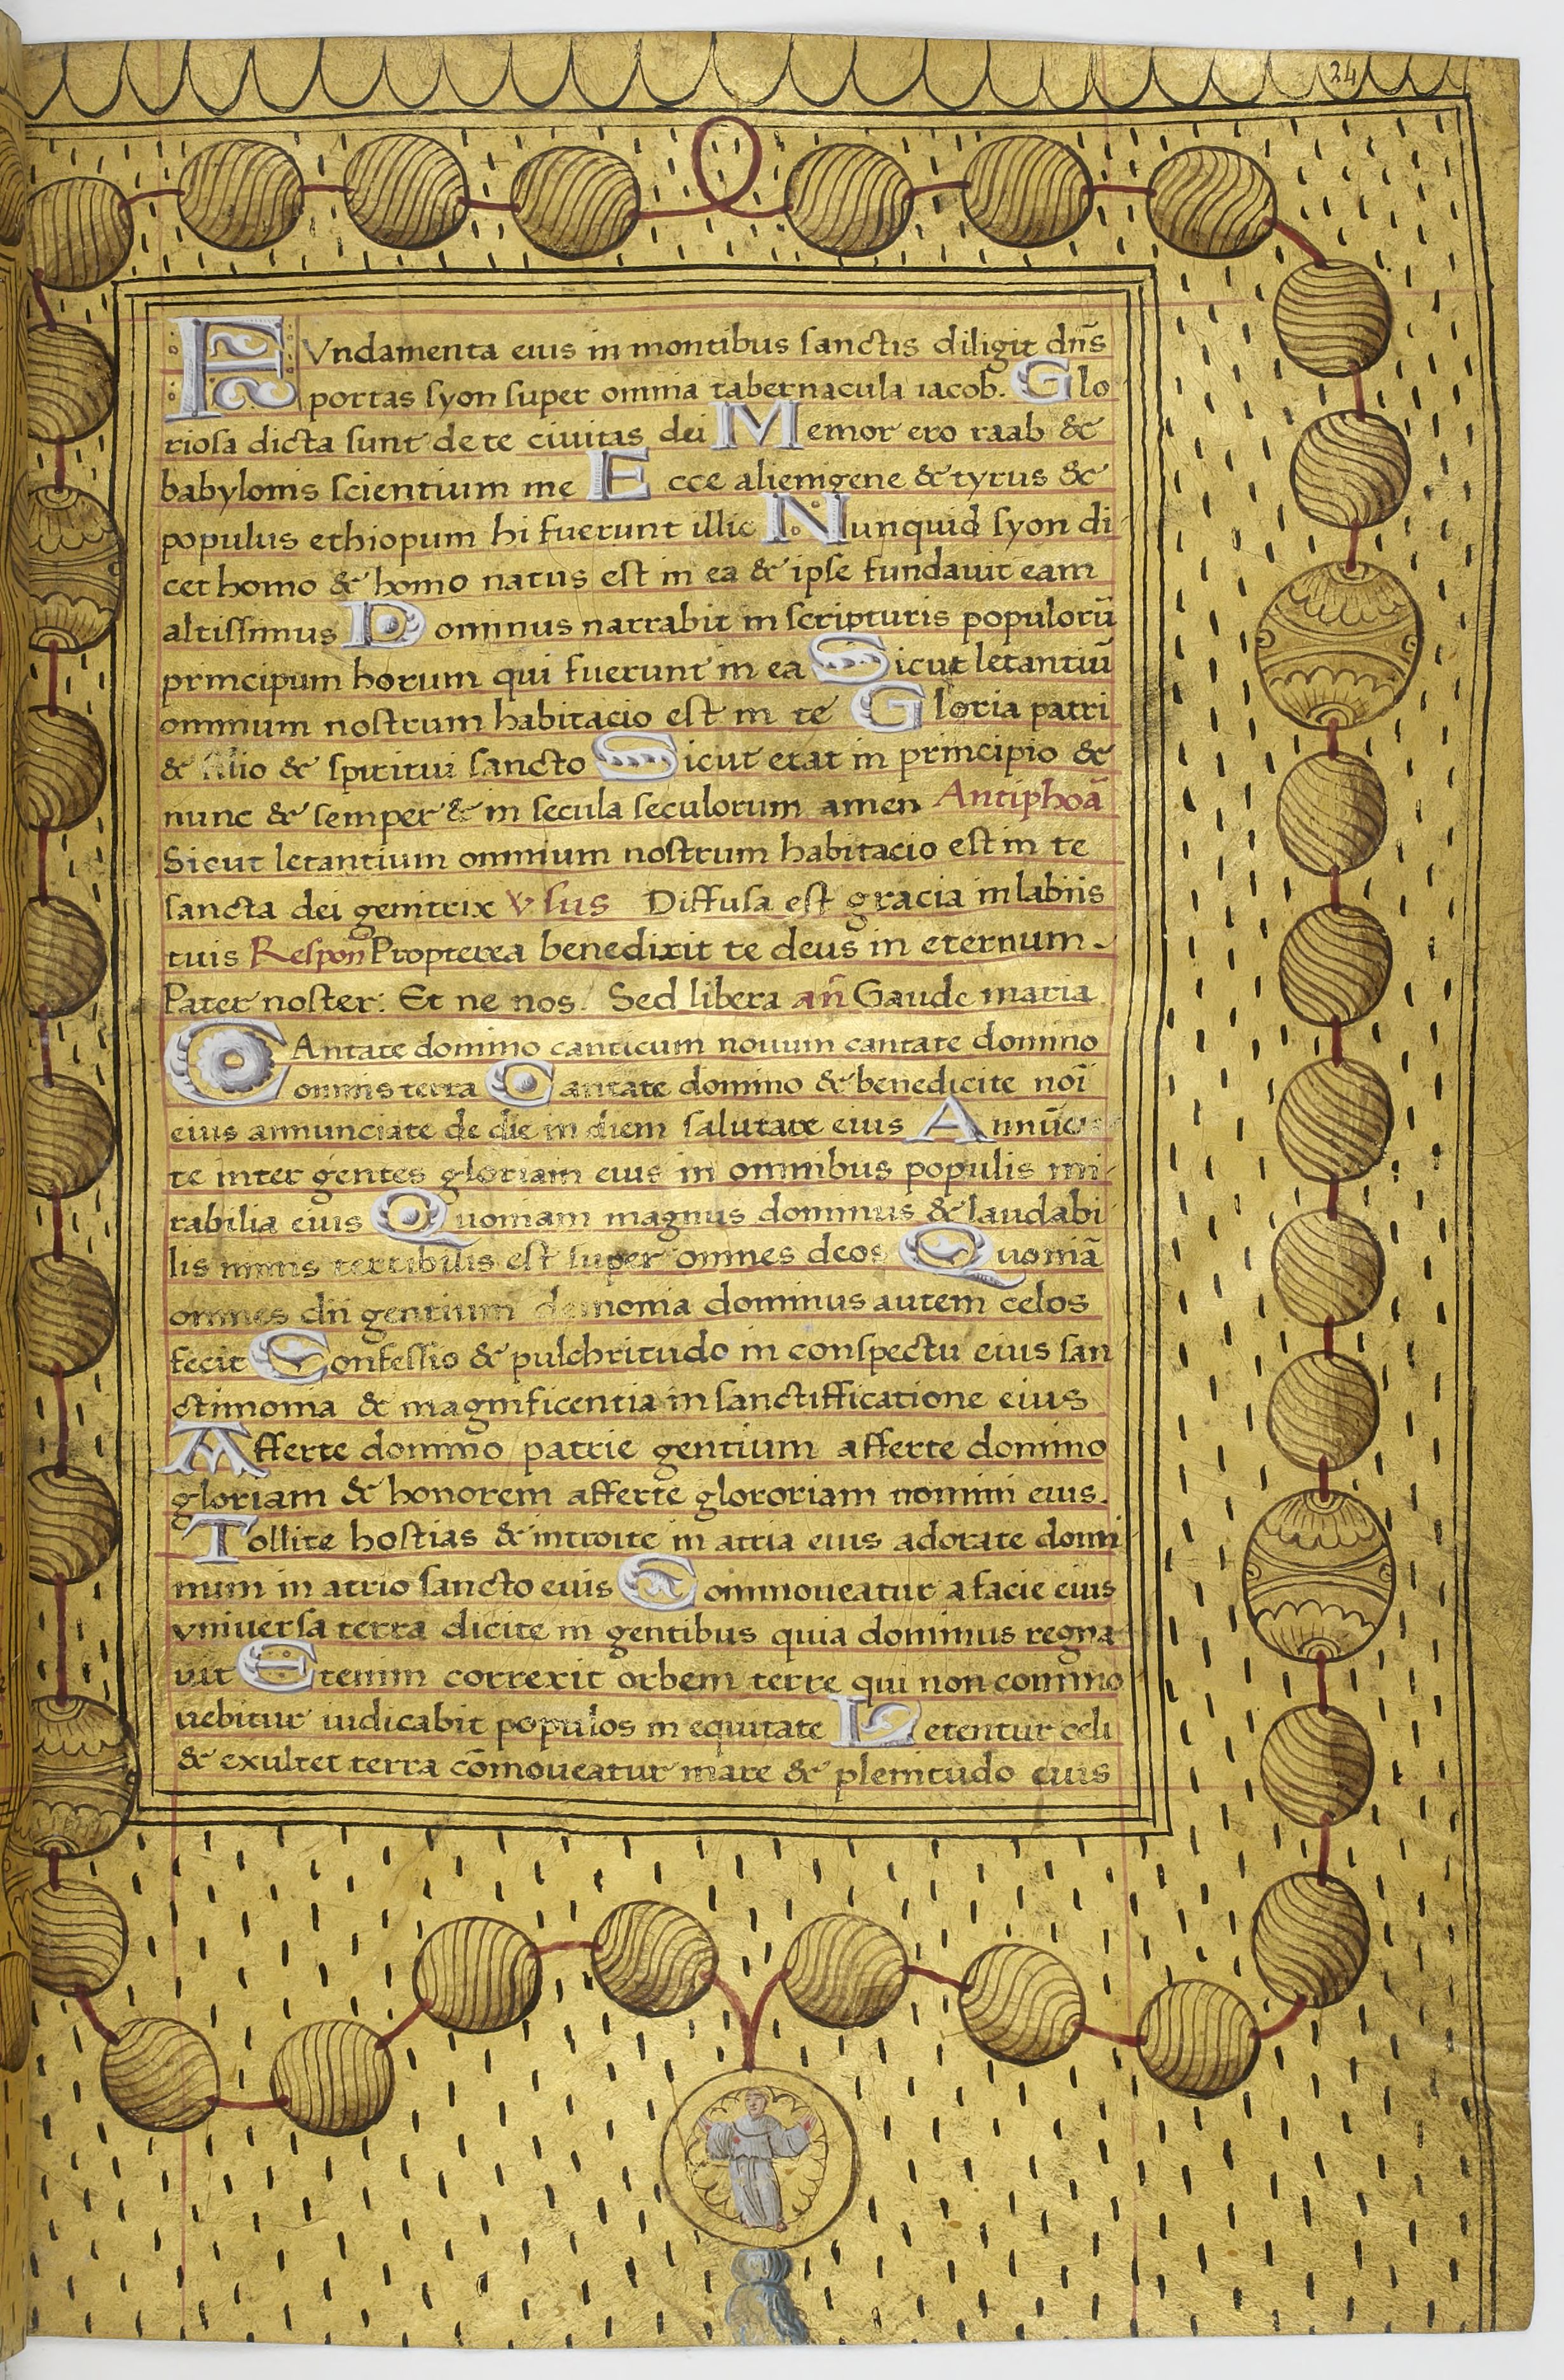 24
FVndamenta eius in montibus sanctis diligit dn̄s
portas syon super omnia tabernacula iacob. Glo
riosa dicta sunt de te ciuitas dei Memor ero raab &
babylonis scientium me Ecce alienigene & tyrus &
populus ethiopum hi fuerunt illic Nunquid syon di
cet homo & homo natus est in ea & ipse fundauit eam
altissimus Dominus narrabit in scripturis populorū
principum horum qui fuerunt in ea Sicut letantiū
omnium nostrum habitacio est in te Gloria patri
& filio & spiritui sancto Sicut erat in principio &
nunc & semper & in secula seculorum amen Antiphoā
Sicut letantium omnium nostrum habitacio est in te
sancta dei genitrix v sus Diffusa est gracia in labiis
tuis Respon Propterea benedixit te deus in eternum.
Pater noster. Et ne nos. Sed libera an̄ Gaude maria
CAntate domino canticum nouum cantate domino
omnis terra Cantate domino & benedicite noī
eius annunciate de die in diem salutare eius Annūcia
te inter gentes gloriam eius in omnibus populis mi
rabilia eius Quoniam magnus dominus & laudabi
lis nimis terribilis est super omnes deos Quoniā
omnes dii gentium demonia dominus autem celos
fecit Confessio & pulchritudo in conspectu eius san
ctimonia & magnificentia in sanctifficatione eius
Afferte domino patrie gentium afferte domino
gloriam & honorem afferte glororiam nomini eius.
Tollite hostias & introite in atria eius adorate domi
num in atrio sancto euis Commoueatur a facie eius
vniuersa terra dicite in gentibus quia dominus regna
uit Etenim correxit orbem terre qui non commo
uebitur iudicabit populos in equitate Letentur celi
& exultet terra cōmoueatur mare & plenitudo euis